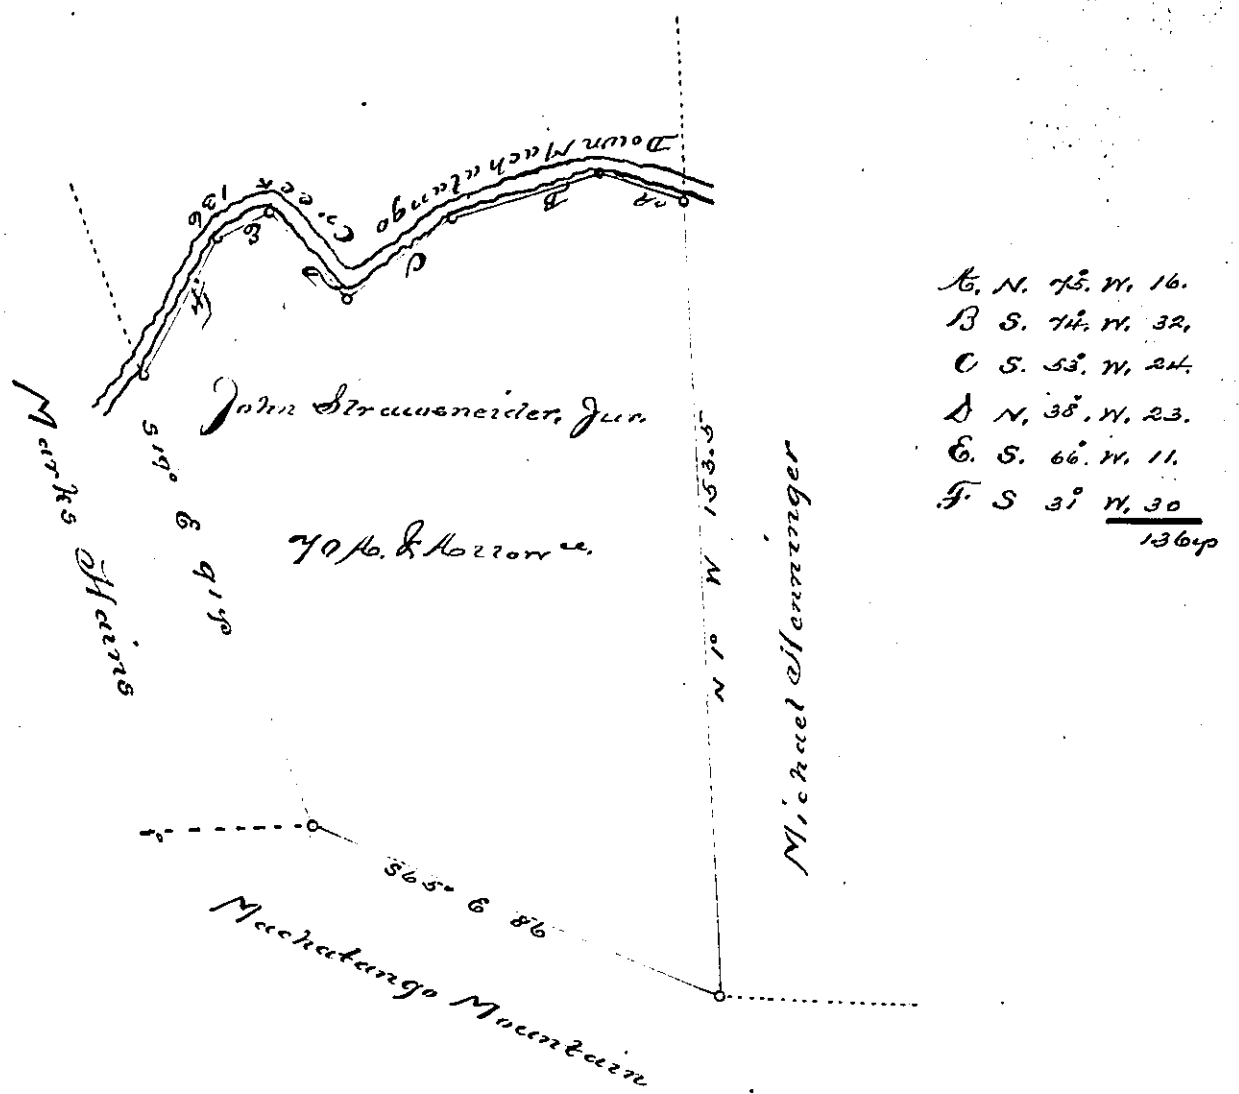 Down Machatango Creek 136
A
B
C
D
E
F
A. N. 75° W. 16.
B S. 74. W. 32,
C S. 53°. W. 24.
D N. 38°. W. 23.
E. S. 66°. W. 11.
F. S 31° W. 30
136 p
John Strawsneider, Jur.
70 A. & Allowce.
S 19° E 91 p
Marks Hains
N 1° W 153.5
Michael Honninger
S 65° E 86
Machatango Mountain